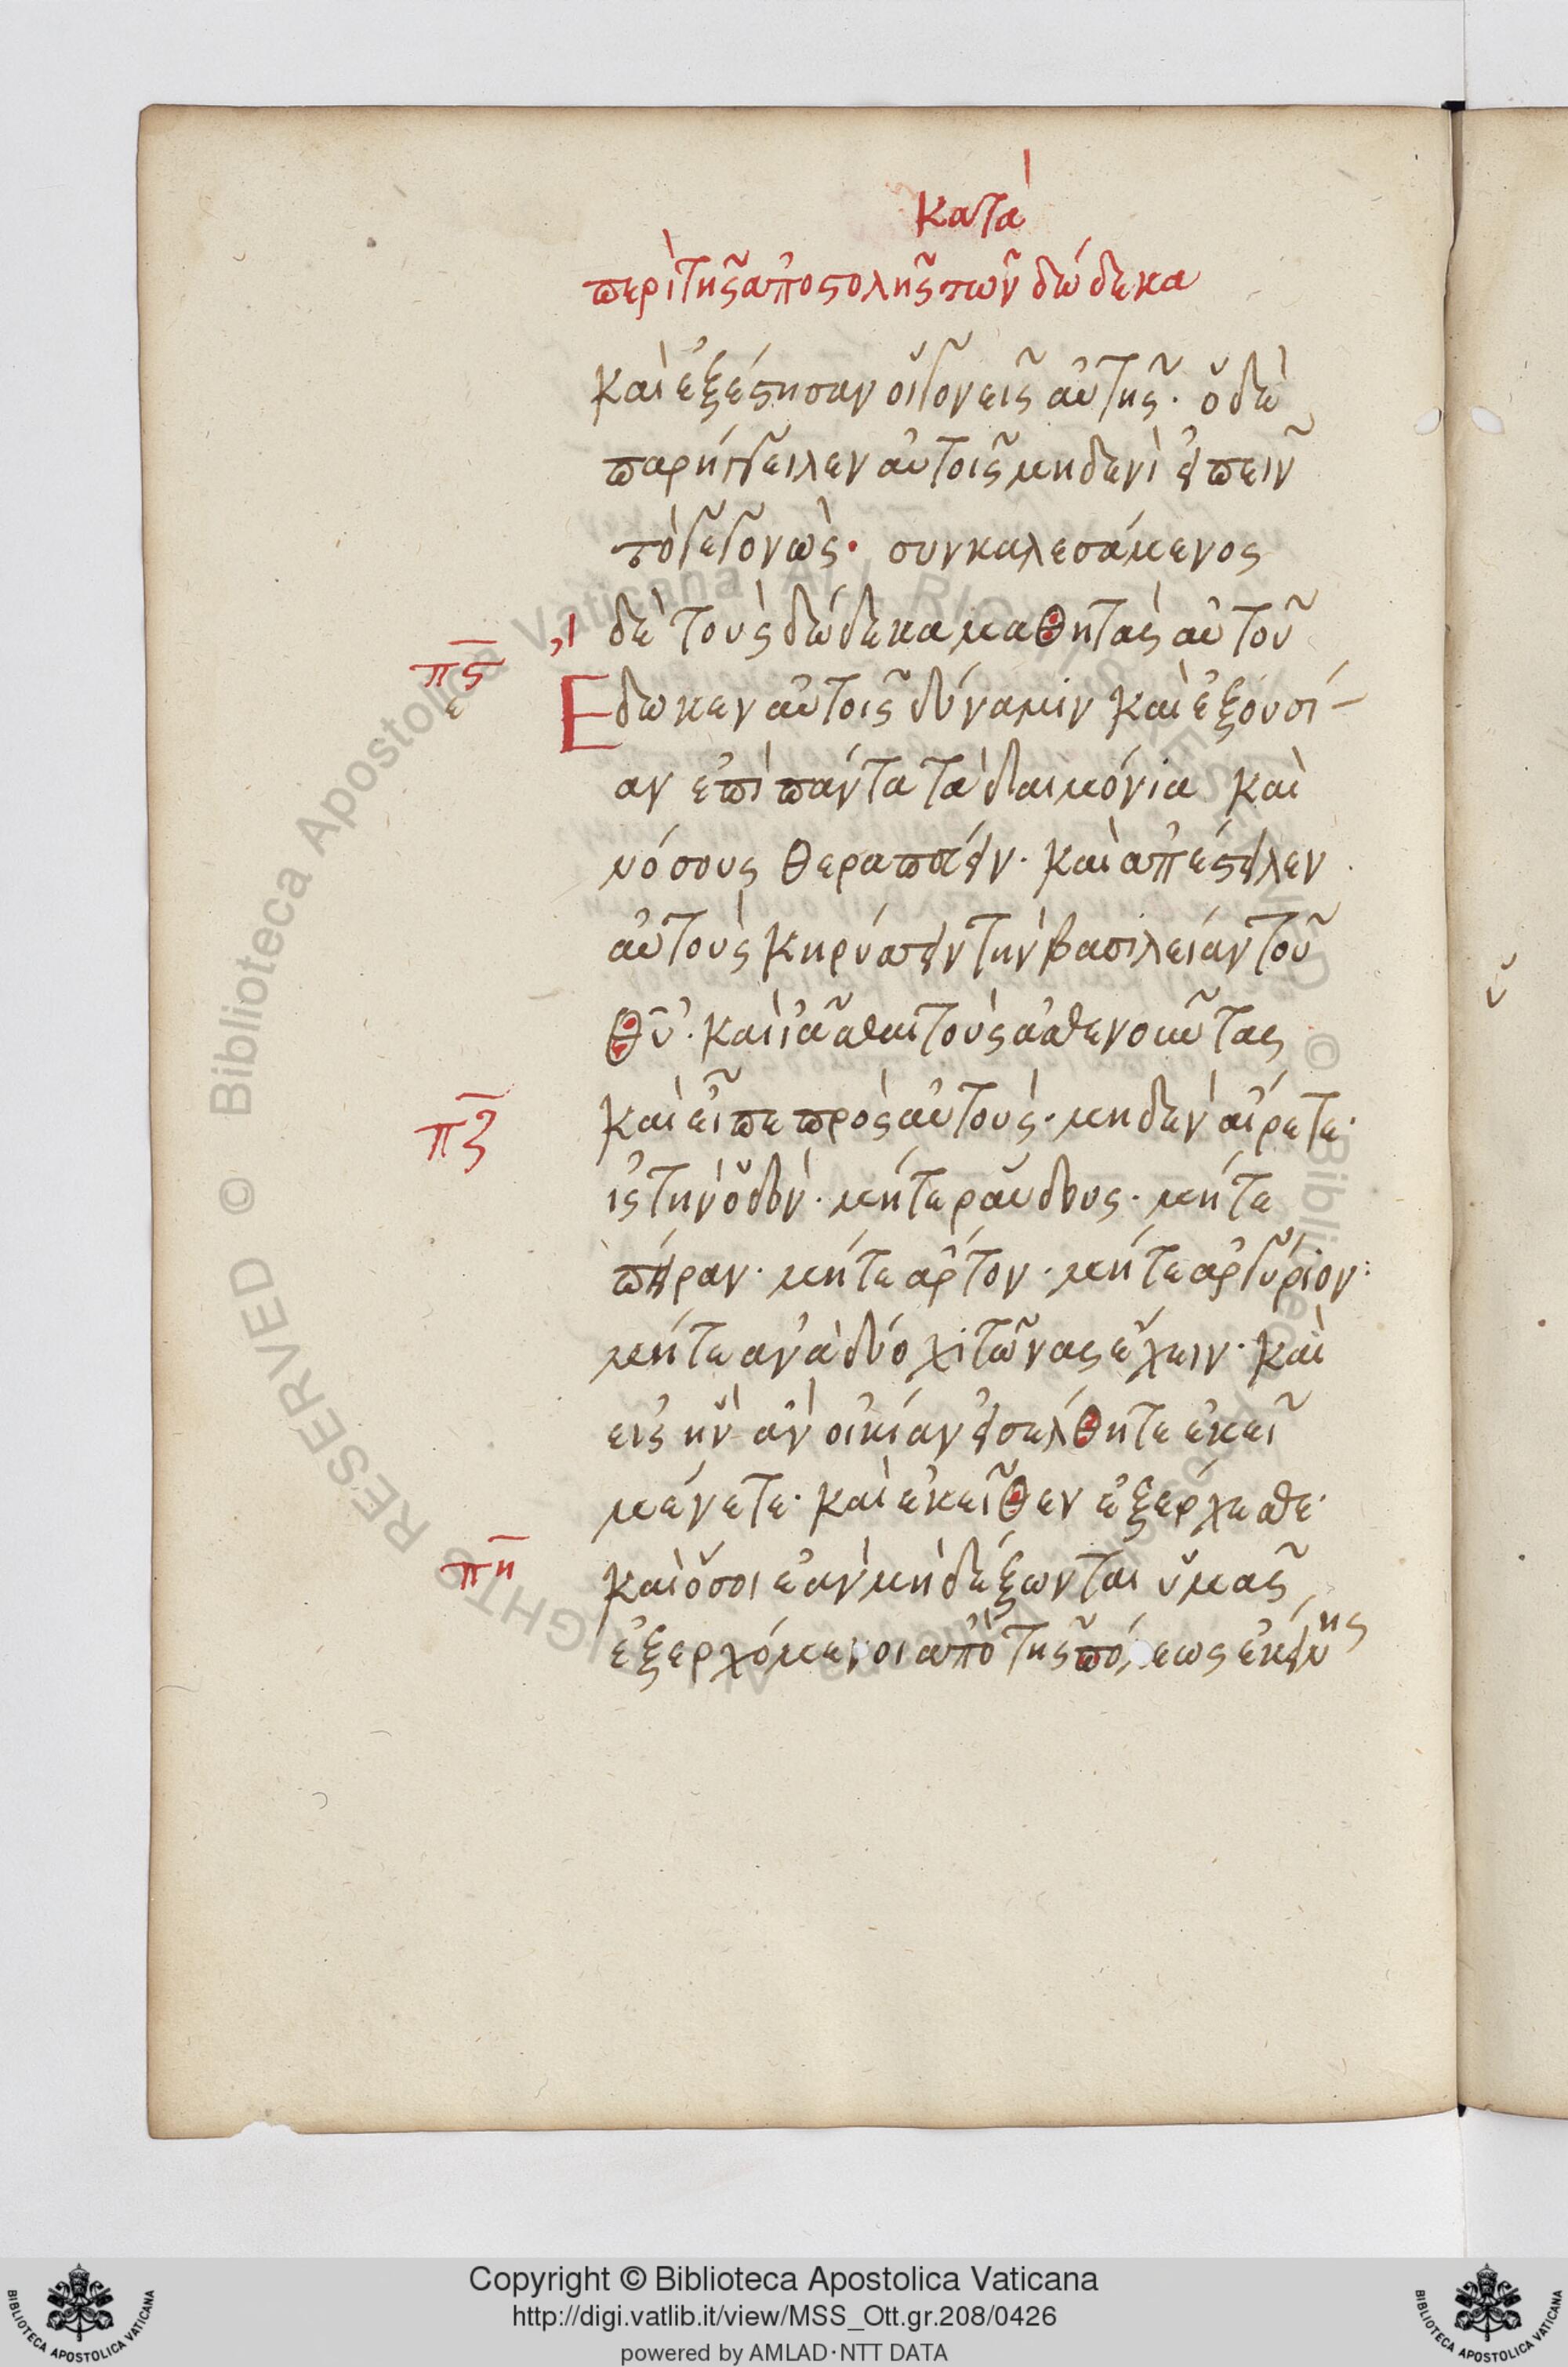 κατὰ
περὶ τῆς ἀποστολῆς τῶν δώδεκα
καὶ ἐξέστησαν οἱ γονεῖς αὐτῆς· ὁ δὲ
παρήγγειλεν αὐτοῖς μηδενὶ εἰπεῖν
τὸ γεγονὼς· συνκαλεσάμενος
δὲ τοὺς δώδεκα μαθητὰς αὐτοῦ
πϛ
ε
Εδωκεν αὐτοῖς δύναμιν καὶ ἐξουσί-
αν ἐπὶ πάντα τὰ δαιμόνια καὶ
νόσους θεραπεύειν· καὶ ἀπέστειλεν
αὐτοὺς κηρύσσειν τὴν βασιλείαν τοῦ
θῦ· καὶ ἰᾶσθαι τοὺς ἀσθενοῦντας
πζ
καὶ εἶπε πρὸς αὐτοὺς· μηδὲν αἴρετε·
ἰς τὴν ὁδὸν· μήτε ραύδους· μήτε
πήραν· μήτε ἄρτον· μήτε ἀργύριον·
μήτε ἀνὰ δύο χιτῶνας ἔχειν· καὶ
εἰς ἣν ἂν οἰκίαν εἰσέλθητε ἐκεῖ
μένετε· καὶ ἐκεῖθεν ἐξερχεσθε·
πη
καὶ ὅσοι ἐὰν μὴ δέξωνται ὑμᾶς
ἐξερχόμενοι ἀπὸ τῆς πό εως ἐκείνης
Copyright © Biblioteca Apostolica Vaticana
http://digi.vatlib.it/view/MSS_Ott.gr.208/0426
powered by AMLAD·NTT DATA